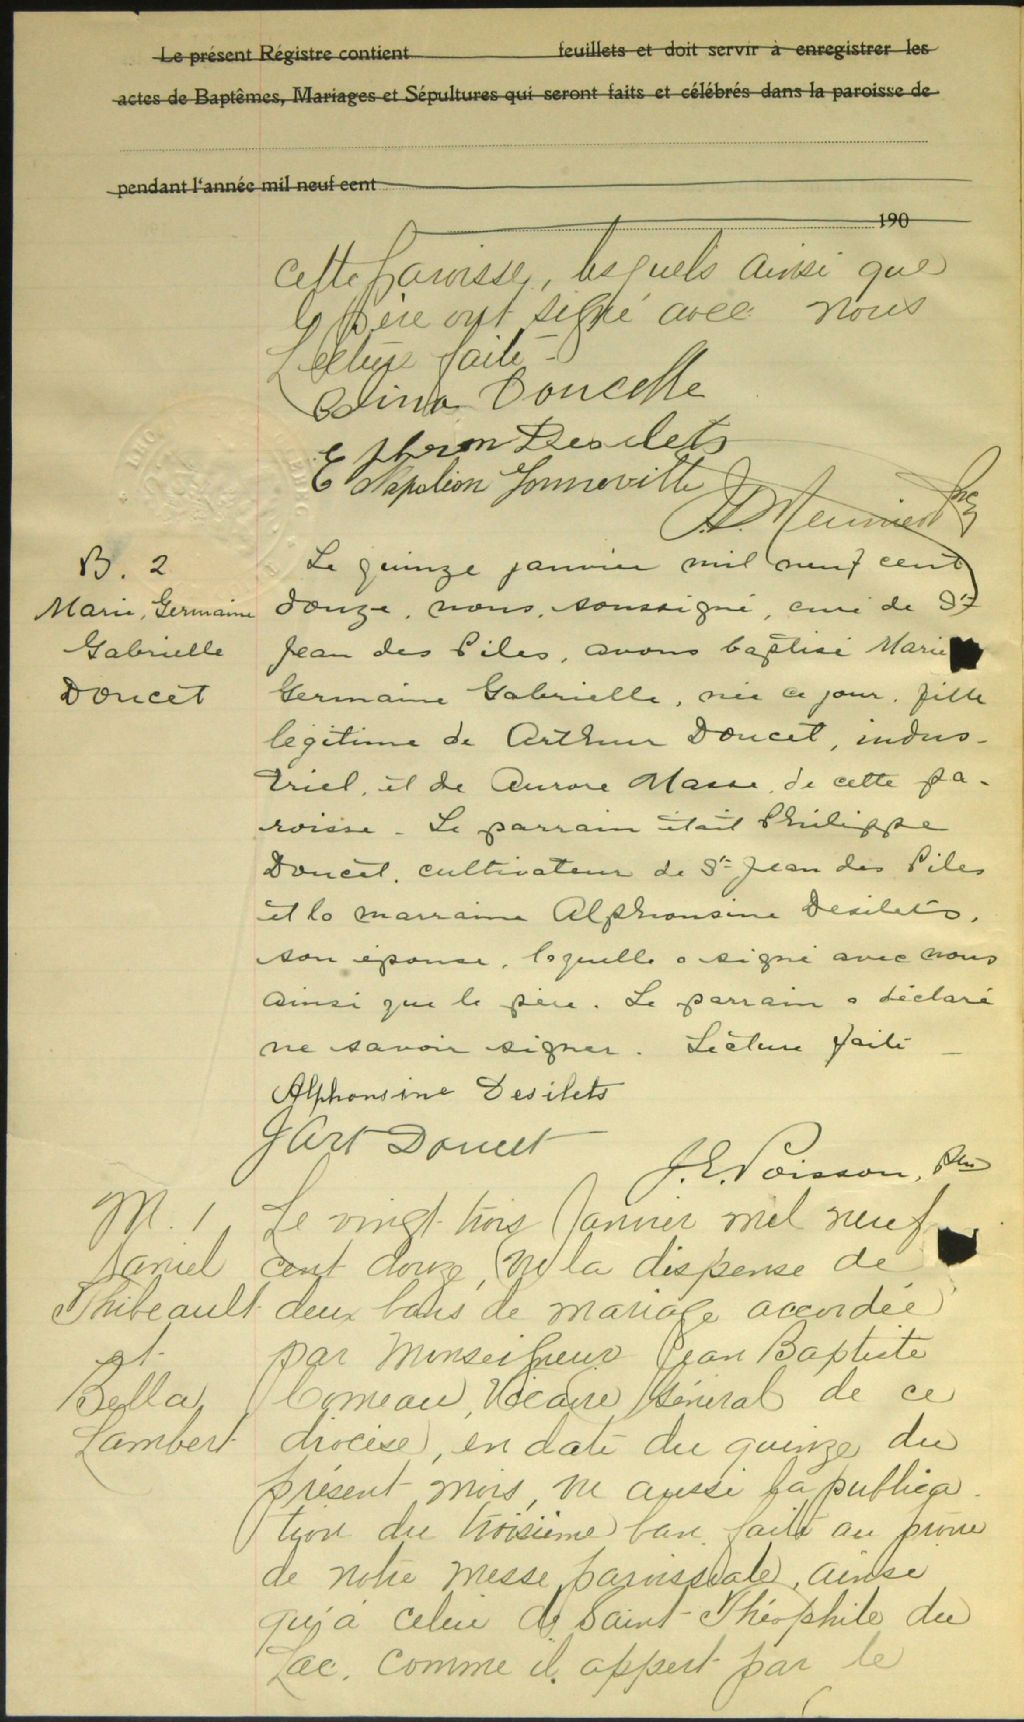 Le présent Régistre contient feuillets et doit servir à enregistrer les
actes de Baptêmes, Mariages et Sépultures qui seront faits et célébrés dans la paroisse de
pendant l'année mil neuf cent
190
cette paroisse, lesquels ainsi que
le père ont signé avec nous
Lecture faite -
Doucette
Ephrem Desilets
Napoléon Gonneville
Meunier Ptre
B. 2
Marie, Germaine
Gabrielle
Doucet
Le quinze janvier mil neuf cent
douze, nous, soussigné, curé de St
Jean des Piles, avons baptisé Marie
Germaine Gabrielle, née ce jour, fille
légitime de Arthur Doucet, indus-
triel, et de Aurore Masse, de cette pa-
roisse - Le parrain était Philippe
Doucet, cultivateur de St Jean des Piles
et la marraine Alphonsine Desilets,
son épouse, laquelle a signé avec nous
ainsi que le père. Le parrain a déclaré
ne savoir signer. Lecture faite -
Alphonsine Desilets
J Art Doucet
J. E. Poisson, Ptre
M. 1
Daniel
Thibeault
et
Bella
Lambert
Le vingt trois Janvier mil neuf
cent douze, vu la dispense de
deux bans de mariage accordée
par Monseigneur Jean Baptiste
Comeau, Vicaire Général de ce
diocèse, en date du quinze du
présent mois, vu aussi la publica-
tion du troisième ban faite au prône
de notre messe paroissiale, ainsi
qu'à celui de Saint-Théophile du
Lac, comme il appert par le